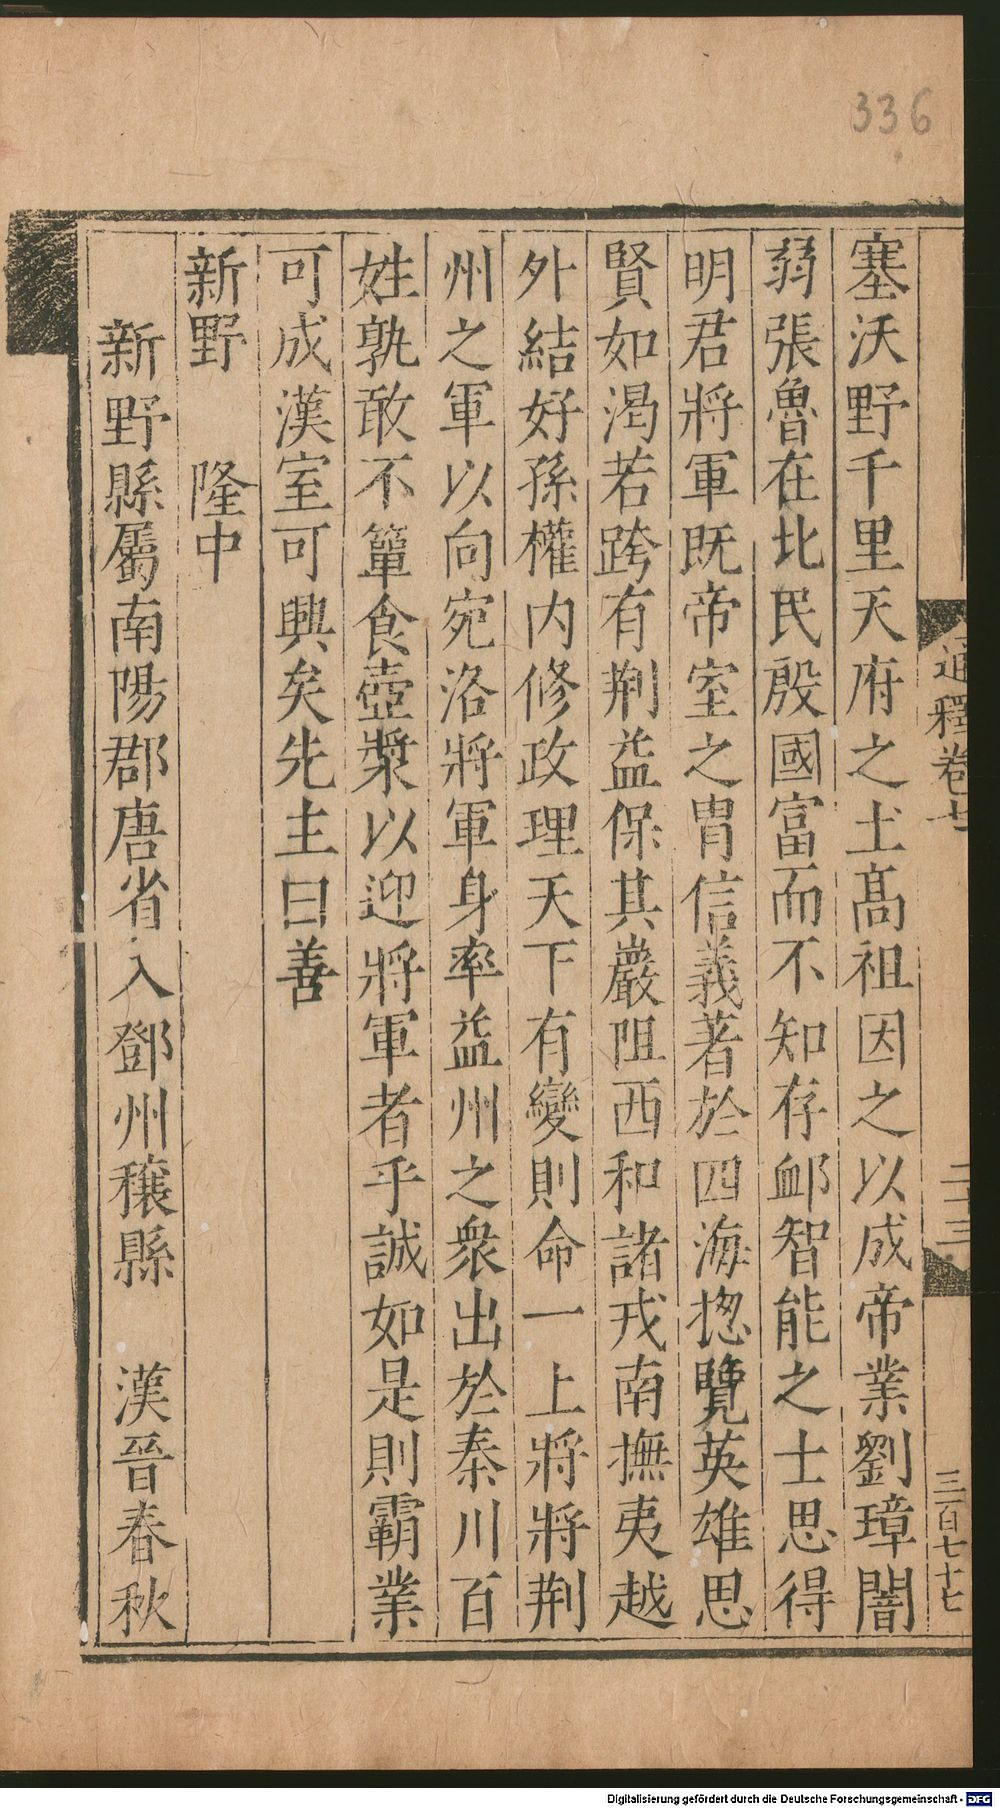 336
通釋卷十
二十三
三百七十七
塞沃野千里天府之土髙祖因之以成帝業劉璋闇
弱張魯在北民殷國富而不知存䘏智能之士思得
明君將軍既帝室之冑信義著於四海揔覽英雄思
賢如渴若跨有荆益保其巖阻西和諸戎南撫夷越
外結好孫權内修政理天下有變則命一上將將荆
州之軍以向宛洛將軍身率益州之衆出於秦川百
姓孰敢不簞食壺漿以迎將軍者乎誠如是則霸業
可成漢室可興矣先主曰善
新野　隆中
新野縣屬南陽郡唐省入鄧州穰縣　漢晉春秋
Digitalisierung gefördert durch die Deutsche Forschungsgemeinschaft - DFG